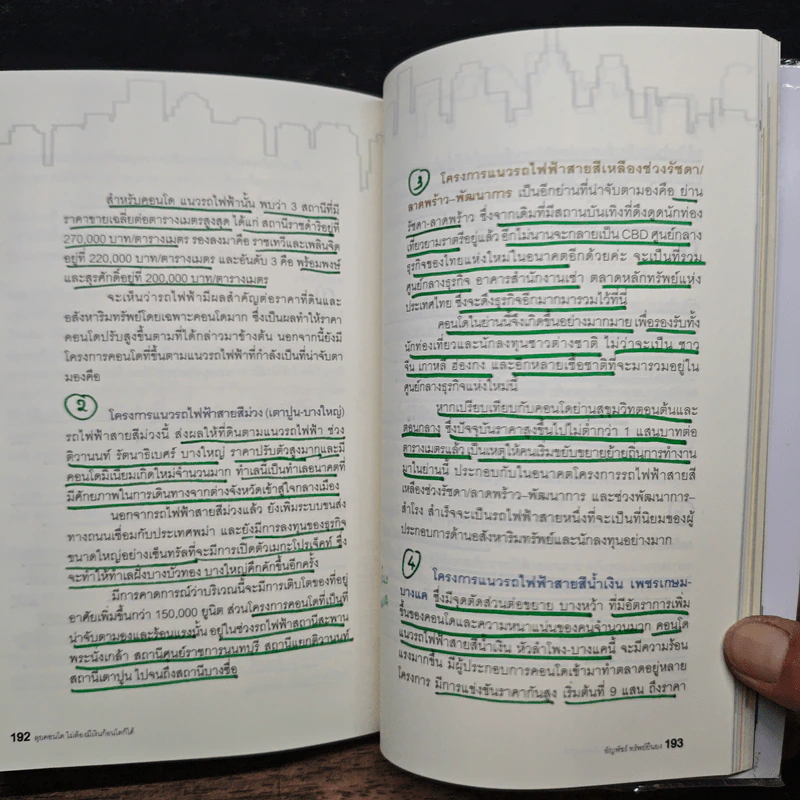 สำหรับคอนโด แนวรถไฟฟ้านั้น พบว่า 3 สถานีที่มี
ราคาขายเฉลี่ยต่อตารางเมตรสูงสุด ได้แก่ สถานีราชดำริอยู่ที่
270,000 บาท/ตารางเมตร รองลงมาคือ ราชเทวีและเพลินจิต
อยู่ที่ 220,000 บาท/ตารางเมตร และอันดับ 3 คือ พร้อมพงษ์
และสุรศักดิ์อยู่ที่ 200,000 บาท/ตารางเมตร
จะเห็นว่ารถไฟฟ้ามีผลสำคัญต่อราคาที่ดินและ
อสังหาริมทรัพย์โดยเฉพาะคอนโดมาก ซึ่งเป็นผลทำให้ราคา
คอนโดปรับสูงขึ้นตามที่ได้กล่าวมาข้างต้น นอกจากนี้ยังมี
โครงการคอนโดที่ขึ้นตามแนวรถไฟฟ้าที่กำลังเป็นที่น่าจับตา
มองคือ
2 โครงการแนวรถไฟฟ้าสายสีม่วง (เตาปูน-บางใหญ่)
รถไฟฟ้าสายสีม่วงนี้ ส่งผลให้ที่ดินตามแนวรถไฟฟ้า ช่วง
ติวานนท์ รัตนาธิเบศร์ บางใหญ่ ราคาปรับตัวสูงมากและมี
คอนโดมิเนียมเกิดใหม่จำนวนมาก ทำเลนี้เป็นทำเลอนาคตที่
มีศักยภาพในการเดินทางจากต่างจังหวัดเข้าสู่ใจกลางเมือง
นอกจากรถไฟฟ้าสายสีม่วงแล้ว ยังเพิ่มระบบขนส่ง
ทางถนนเชื่อมกับประเทศพม่า และยังมีการลงทุนของธุรกิจ
ขนาดใหญ่อย่างเซ็นทรัลที่จะมีการเปิดตัวเมกะโปรเจ็คท์ ซึ่ง
จะทำให้ทำเลฝั่งบางบัวทอง บางใหญ่คึกคักขึ้นอีกครั้ง
มีการคาดการณ์ว่าบริเวณนี้จะมีการเติบโตของที่อยู่
อาศัยเพิ่มขึ้นกว่า 150,000 ยูนิต ส่วนโครงการคอนโดที่เป็นที่
น่าจับตามองและร้อนแรงนั้น อยู่ในช่วงรถไฟฟ้าสถานีสะพาน
พระนั่งเกล้า สถานีศูนย์ราชการนนทบุรี สถานีแยกติวานนท์
สถานีเตาปูน ไปจนถึงสถานีบางซื่อ
192 ลุยคอนโด ไม่ต้องมีเงินก้อนโตก็ได้
3 โครงการแนวรถไฟฟ้าสายสีเหลืองช่วงรัชดา/
ลาดพร้าว–พัฒนาการ เป็นอีกย่านที่น่าจับตามองคือ ย่าน
รัชดา-ลาดพร้าว ซึ่งจากเดิมที่มีสถานบันเทิงที่ดึงดูดนักท่อง
เที่ยวยามราตรีอยู่แล้ว อีกไม่นานจะกลายเป็น CBD ศูนย์กลาง
ธุรกิจของไทยแห่งใหม่ในอนาคตอีกด้วยค่ะ จะเป็นที่รวม
ศูนย์กลางธุรกิจ อาคารสำนักงานเช่า ตลาดหลักทรัพย์แห่ง
ประเทศไทย ซึ่งจะดึงธุรกิจอีกมากมารวมไว้ที่นี่
คอนโดในย่านนี้จึงเกิดขึ้นอย่างมากมาย เพื่อรองรับทั้ง
นักท่องเที่ยวและนักลงทุนชาวต่างชาติ ไม่ว่าจะเป็น ชาว
จีน เกาหลี ฮ่องกง และอีกหลายเชื้อชาติที่จะมารวมอยู่ใน
ศูนย์กลางธุรกิจแห่งใหม่นี้
หากเปรียบเทียบกับคอนโดย่านสุขุมวิทตอนต้นและ
ตอนกลาง ซึ่งปัจจุบันราคาสูงขึ้นไปไม่ต่ำกว่า 1 แสนบาทต่อ
ตารางเมตรแล้ว เป็นเหตุให้คนเริ่มขยับขยายย้ายถิ่นการทำงาน
มาในย่านนี้ ประกอบกับในอนาคตโครงการรถไฟฟ้าสายสี
เหลืองช่วงรัชดา/ลาดพร้าว–พัฒนาการ และช่วงพัฒนาการ–
สำโรง สำเร็จจะเป็นรถไฟฟ้าสายหนึ่งที่จะเป็นที่นิยมของผู้
ประกอบการด้านอสังหาริมทรัพย์และนักลงทุนอย่างมาก
4 โครงการแนวรถไฟฟ้าสายสีน้ำเงิน เพชรเกษม-
บางแค ซึ่งมีจุดตัดส่วนต่อขยาย บางหว้า ที่มีอัตราการเพิ่ม
ขึ้นของคอนโดและความหนาแน่นของคนจำนวนมาก คอนโด
แนวรถไฟฟ้าสายสีน้ำเงิน หัวลำโพง-บางแคนี้ จะมีความร้อน
แรงมากขึ้น มีผู้ประกอบการคอนโดเข้ามาทำตลาดอยู่หลาย
โครงการ มีการแข่งขันราคากันสูง เริ่มต้นที่ 9 แสน ถึงราคา
ธัญพัชร์ ทรัพย์ยืนยง 193